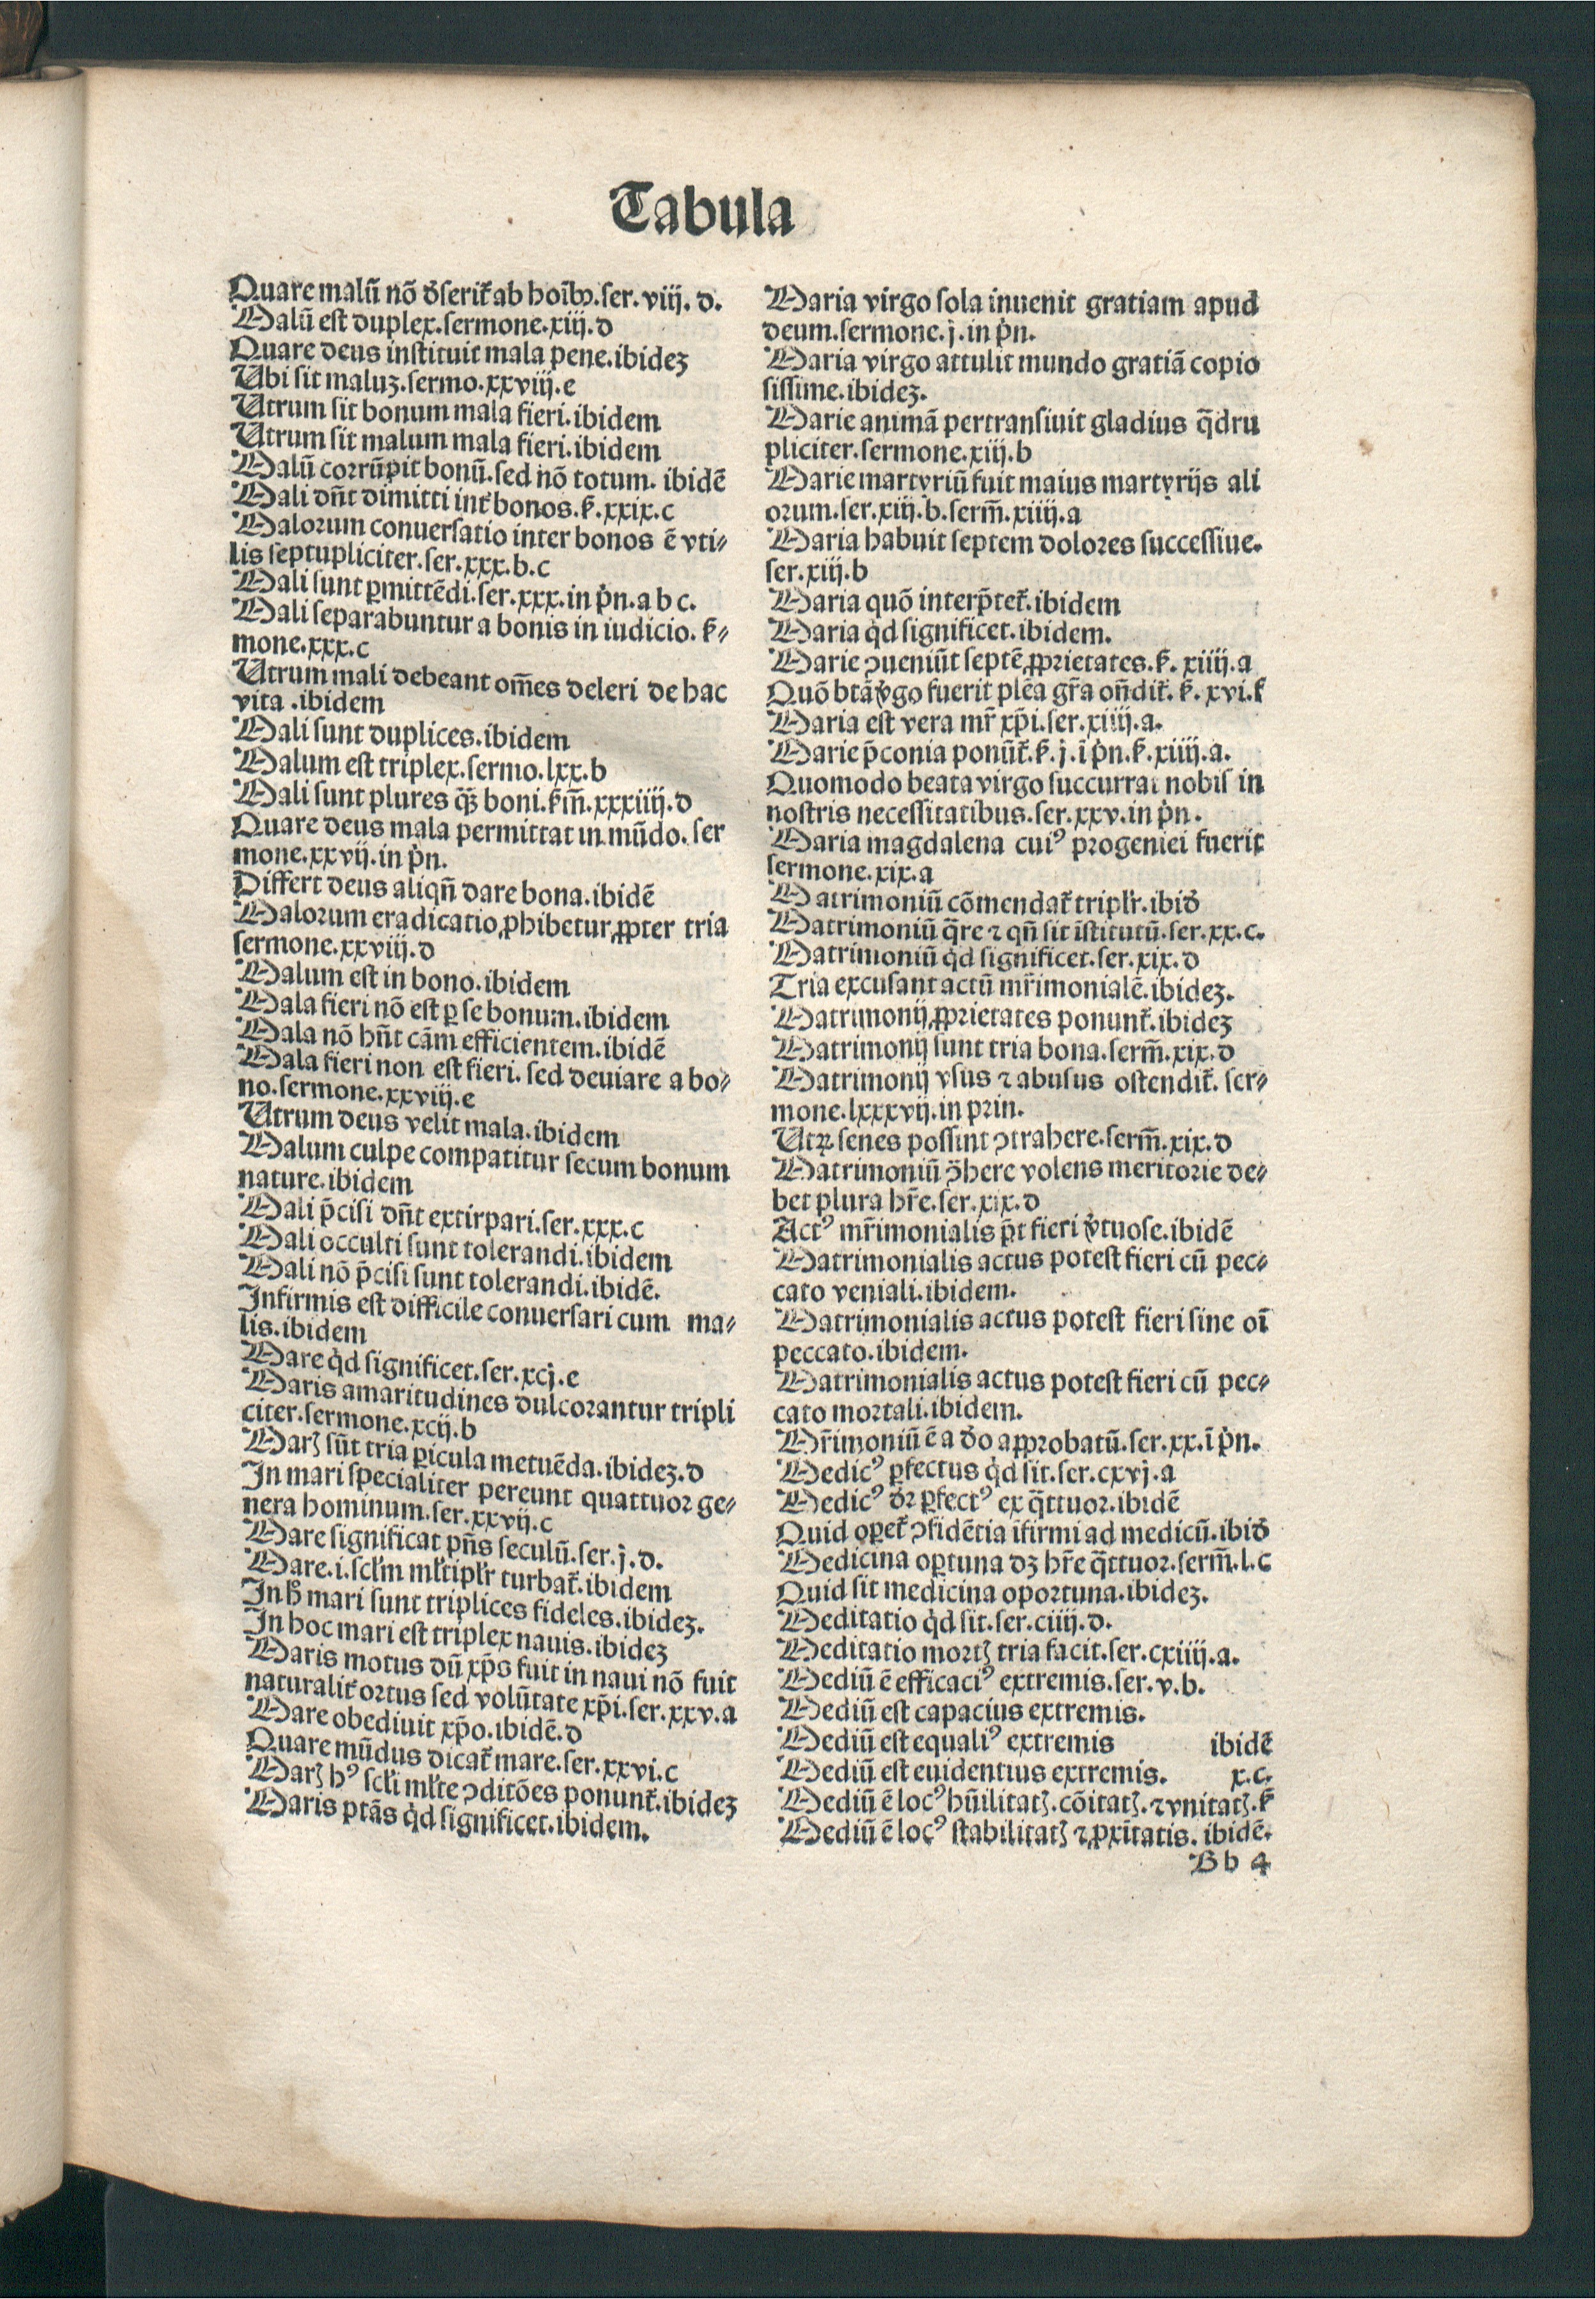 Tabula
Quare malū nō d̛serit᷑ ab hoībꝫ.ser.viij.d.
Malū est duplex.sermone.xiij.d
Quare deus instituit mala pene.ibideꝫ
Ubi sit maluꝫ.sermo.xxviij.e
Utrum sit bonum mala fieri.ibidem
Utrum sit malum mala fieri.ibidem
Malū corrūpit bonū.sed nō totum. ibidē
Mali dn̄t dimitti int᷑ bonos.ẜ.xxix.c
Malorum conuersatio inter bonos ē vti⸗
lis septupliciter.ser.xxx.b.c
Mali sunt ꝑmittēdi.ser.xxx.in p̍n.a b c.
Mali separabuntur a bonis in iudicio. ẜ⸗
mone.xxx.c
Utrum mali debeant om̄es deleri de hac
vita .ibidem
Mali sunt duplices.ibidem
Malum est triplex.sermo.lxx.b
Mali sunt plures q̄ꝫ boni.ẜm̄.xxxiiij.d
Quare deus mala permittat in mūdo. ser
mone.xxvij.in p̍n.
Differt deus aliqn̄ dare bona.ibidē
Malorum eradicatio ꝓhibetur ꝓpter tria
sermone.xxviij.d
Malum est in bono.ibidem
Mala fieri nō est ꝑ se bonum.ibidem
Mala nō hn̄t cām efficientem.ibidē
Mala fieri non est fieri. sed deuiare a bo⸗
no.sermone.xxviij.e
Utrum deus velit mala.ibidem
Malum culpe compatitur secum bonum
nature.ibidem
Mali p̄cisi dn̄t extirpari.ser.xxx.c
Mali occulti sunt tolerandi.ibidem
Mali nō p̄cisi sunt tolerandi.ibidē.
Infirmis est difficile conuersari cum ma⸗
lis.ibidem
Mare qd̍ significet.ser.xcj.e
Maris amaritudines dulcorantur tripli
citer.sermone.xcij.b
Marꝭ sūt tria ꝑicula metuēda.ibideꝫ.d
In mari specialiter pereunt quattuor ge⸗
nera hominum.ser.xxvij.c
Mare significat pn̄s seculū.ser.j.d.
Mare.i.scl̓m ml̓tipl̓r turbat᷑.ibidem
In h̓ mari sunt triplices fideles.ibideꝫ.
In hoc mari est triplex nauis.ibideꝫ
Maris motus dū xp̄s fuit in naui nō fuit
naturalit᷑ ortus sed volūtate xp̄i.ser.xxv.a
Mare obediuit xp̄o.ibidē.d
Quare mūdus dicat᷑ mare.ser.xxvi.c
Marꝭ hꝰ scl̓i ml̓te ꝯditōes ponunt᷑.ibideꝫ
Maris ptās qd̍ significet.ibidem.
Maria virgo sola inuenit gratiam apud
deum.sermone.j.in p̍n.
Maria virgo attulit mundo gratiā copio
sissime.ibideꝫ.
Marie animā pertransiuit gladius q̄dru
pliciter.sermone.xiij.b
Marie martyriū fuit maius martyrijs ali
orum.ser.xiij.b.serm̄.xiiij.a
Maria habuit septem dolores successiue.
ser.xiij.b
Maria quō interp̄tet᷑.ibidem
Maria qd̍ significet.ibidem.
Marie ꝯueniūt septē ꝓprietates.ẜ. xiiij.a
Quō btā v̓go fuerit plēa gr̄a on̄dit᷑. ẜ. xvi.f
Maria est vera mr̄ xp̄i.ser.xiiij.a.
Marie p̄conia ponūt᷑.ẜ.j.ī p̍n.ẜ.xiiij.a.
Quomodo beata virgo succurrat nobis in
nostris necessitatibus.ser.xxv.in p̍n.
Maria magdalena cuiꝰ progeniei fuerit
sermone.xix.a
Matrimoniū cōmendat᷑ tripl̓r.ibid̛
Matrimoniū q̄re ⁊ qn̄ sit īstitutū.ser.xx.c.
Matrimoniū qd̍ significet.ser.xix.d
Tria excusant actū mr̄imonialē.ibideꝫ.
Matrimonij ꝓprietates ponunt᷑.ibideꝫ
Matrimonij sunt tria bona.serm̄.xix.d
Matrimonij vsus ⁊ abusus ostendit᷑. ser⸗
mone.lxxxvij.in prin.
Utꝝ senes possint ꝯtrahere.serm̄.xix.d
Matrimoniū ꝯ̄here volens meritorie de⸗
bet plura hr̄e.ser.xix.d
Actꝰ mr̄imonialis p̄t fieri v̓tuose.ibidē
Matrimonialis actus potest fieri cū pec⸗
cato veniali.ibidem.
Matrimonialis actus potest fieri sine oī
peccato.ibidem.
Matrimonialis actus potest fieri cū pec⸗
cato mortali.ibidem.
Mr̄imoniū ē a d̛o approbatū.ser.xx.ī p̍n.
Medicꝰ ꝑfectus qd̍ sit.ser.cxvj.a
Medicꝰ d̛ꝛ ꝑfectꝰ ex q̄ttuor.ibidē
Quid oꝑet᷑ ꝯfidētia ifirmi ad medicū.ibid̛
Medicina oꝑtuna dꝫ hr̄e q̄ttuor.serm̄.l.c
Quid sit medicina oportuna.ibideꝫ.
Meditatio qd̍ sit.ser.ciiij.d.
Meditatio mortꝭ tria facit.ser.cxiiij.a.
Mediū ē efficaciꝰ extremis.ser.v.b.
Mediū est capacius extremis.
Mediū est equaliꝰ extremis ibidē
Mediū est euidentius extremis. x.c.
Mediū ē locꝰ hūilitatꝭ.cōitatꝭ.⁊vnitatꝭ.ẜ
Mediū ē locꝰ stabilitatꝭ ⁊ ꝓxītatis. ibidē.
Bb 4